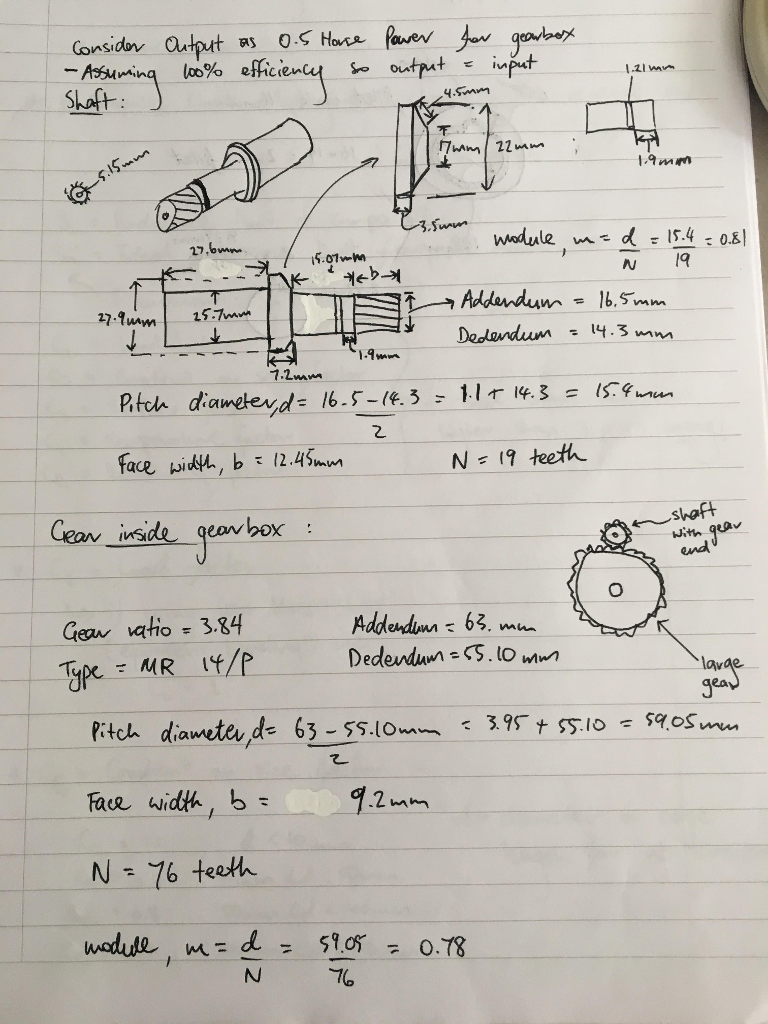 Consider Output as 0.5 Horse Power for gearbox
- Assuming 100% efficiency so output = input
Shaft:
5.15mm
4.5mm
17mm
22mm
3.5mm
1.21mm
1.9mm
module, m = d/N = 15.4/19 = 0.81
27.6mm
15.07mm
b
27.9mm
25.7mm
7.2mm
1.9mm
Addendum = 16.5mm
Dedendum = 14.3mm
Pitch diameter, d = 16.5-14.3/2 = 1.1 + 14.3 = 15.4mm
Face width, b = 12.45mm
N = 19 teeth
Gear inside gearbox :
shaft
with gear
end
large
gear
Gear ratio = 3.84
Addendum = 63. mm
Type = MR 14/P
Dedendum = 55.10 mm
Pitch diameter, d = 63 - 55.10mm/2 = 3.95 + 55.10 = 59.05mm
Face width, b = 9.2mm
N = 76 teeth
module, m = d/N = 59.05/76 = 0.78